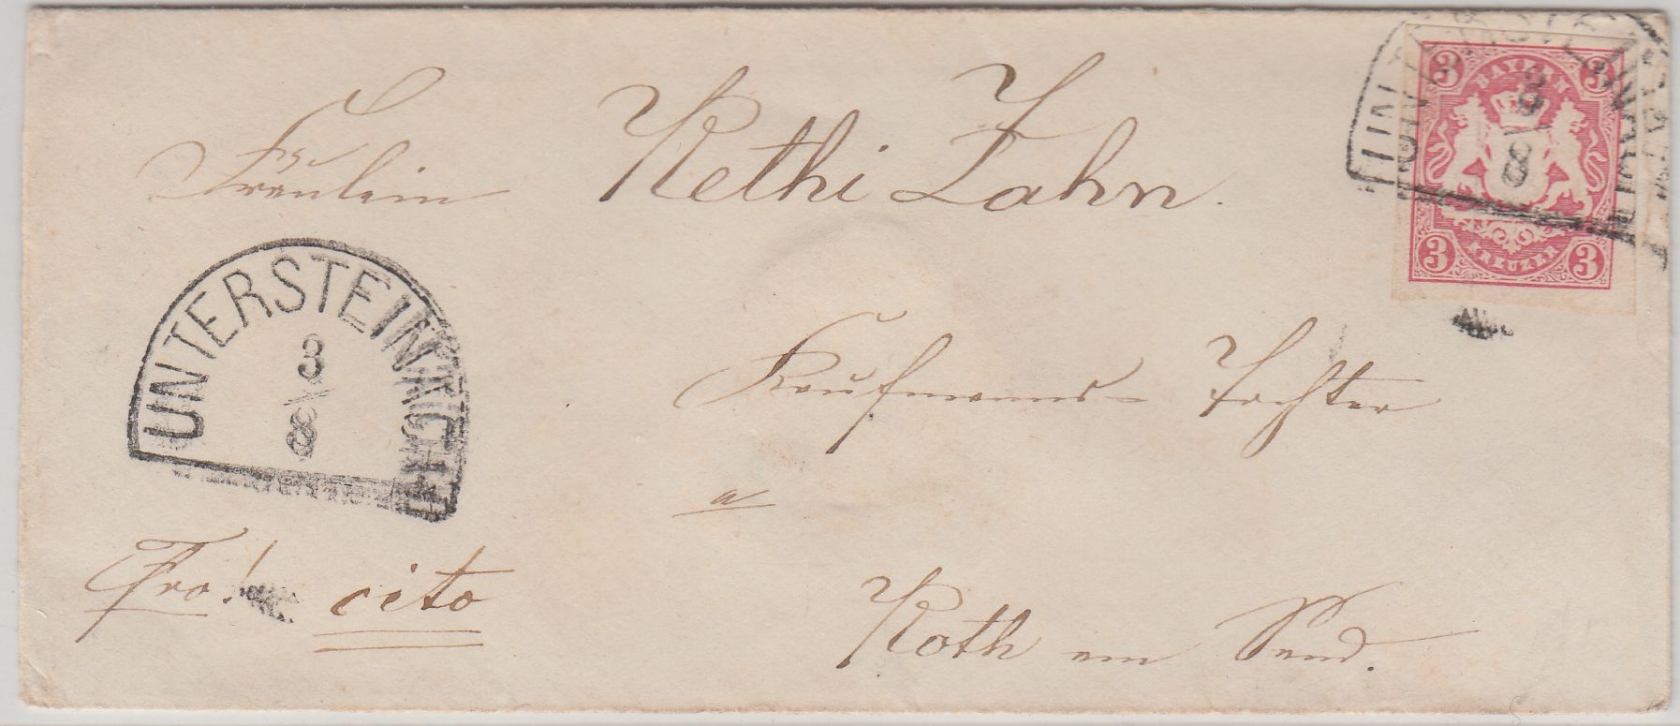 Fräulein Kethi Zahn.
Kaufmanns- Tochter
a
Roth am Sand.
Fro! cito
UNTERSTEINACH
3
8
3 BAYERN 3
3 KREUZER 3
UNTERSTEINACH
3
8